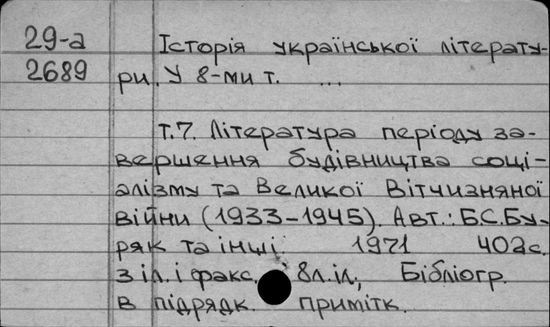 29-а Історія української літерату-
2689 ри. У 8-ми т. ...
т.7. Література періоду за-
вершення будівництва соці-
алізму та Великої Вітчизняної
війни (1933-1945). Авт.: Б.С.Бу-
ряк та інші. 1971 402с.
з іл. і факс. 8л.іл; Бібліогр.
в підрядк. примітк.